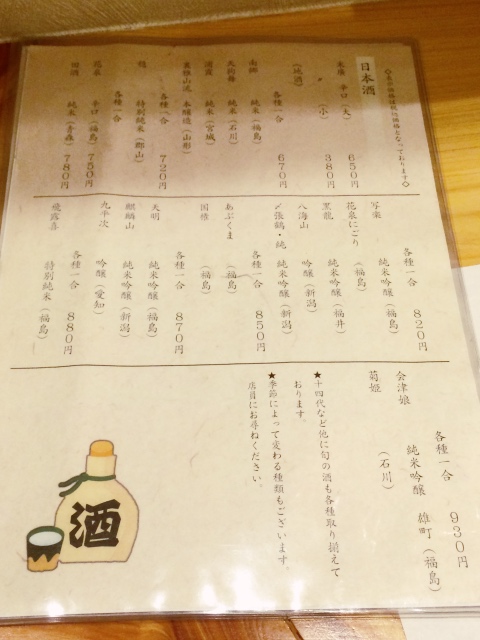 ◇表示価格は税込価格となっております◇
日本酒
末廣 辛口(大) 650円
(小) 380円
(地酒) 各種一合 670円
南郷 純米(福島)
天狗舞 純米(石川)
浦霞 純米(宮城)
裏雅山流 本醸造(山形)
各種一合 720円
穏 特別純米(郡山)
花泉 辛口(福島) 750円
田酒 純米(青森) 780円
各種一合 820円
写楽 純米吟醸(福島)
花泉にごり (福島)
黒龍 純米吟醸(福井)
八海山 吟醸(新潟)
〆張鶴・純 純米吟醸(新潟)
各種一合 850円
あぶくま (福島)
国権 (福島)
各種一合 870円
天明 純米吟醸(福島)
麒麟山 純米吟醸(新潟)
九平次 吟醸(愛知)
各種一合 880円
飛露喜 特別純米(福島)
各種一合 930円
会津娘 純米吟醸 雄町(福島)
菊姫 (石川)
★十四代など他に旬の酒も各種取り揃えて
おります。
★季節によって変わる種類もございます。
店員にお尋ねください。
酒